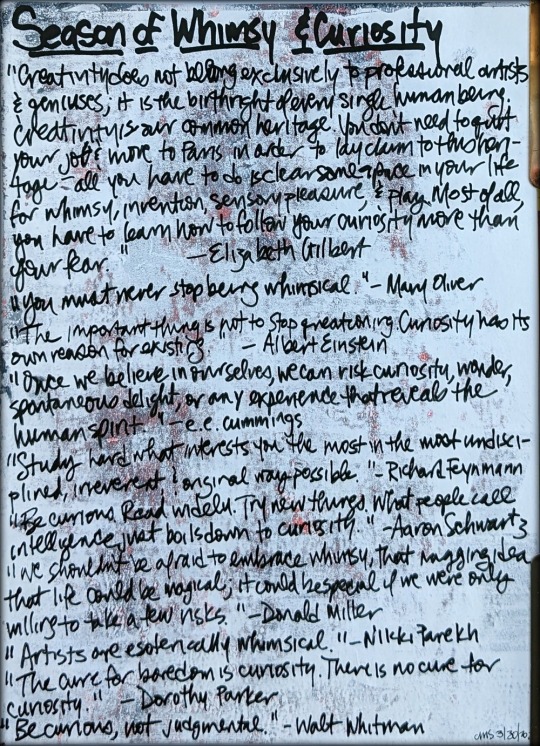 Season of Whimsy & Curiosity
"Creativity does not belong exclusively to professional artists
& geniuses; it is the birthright of every single human being.
Creativity is our common heritage. You don't need to quit
your job & move to Paris in order to lay claim to this heri-
tage - all you have to do is clear some space in your life
for whimsy, invention, sensory pleasure, & play. Most of all,
you have to learn how to follow your curiosity more than
your fear." - Elizabeth Gilbert
"You must never stop being whimsical." - Mary Oliver
"The important thing is not to stop questioning. Curiosity has its
own reason for existing." - Albert Einstein
"Once we believe in ourselves, we can risk curiosity, wonder,
spontaneous delight, or any experience that reveals the
human spirit." - e.e. cummings
"Study hard what interests you the most in the most undisci-
plined, irreverent & original way possible." - Richard Feynmann
"Be curious. Read widely. Try new things. What people call
intelligence just boils down to curiosity." - Aaron Schwartz
"We shouldn't be afraid to embrace whimsy, that nagging idea
that life could be magical; it could be special if we were only
willing to take a few risks." - Donald Miller
"Artists are esoterically whimsical." - Nikki Parekh
"The cure for boredom is curiosity. There is no cure for
curiosity." - Dorothy Parker
"Be curious, not judgmental." - Walt Whitman